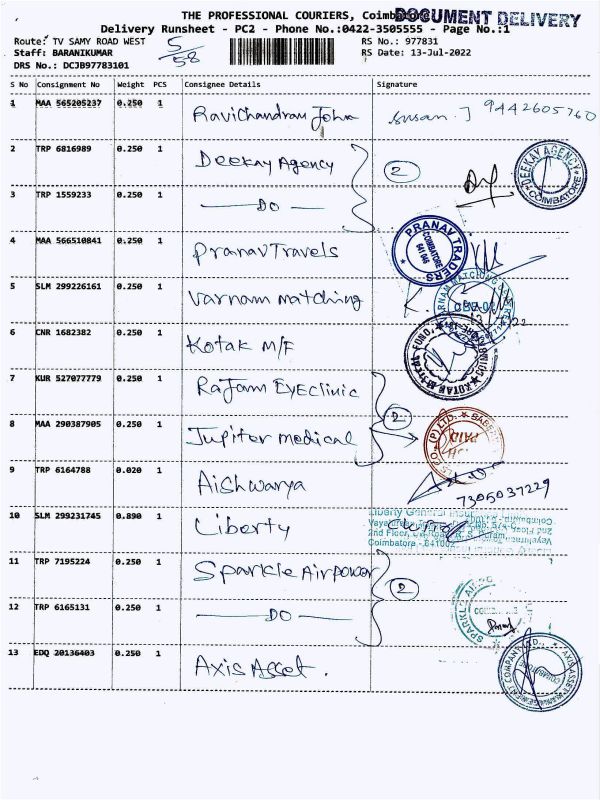 THE PROFESSIONAL COURIERS, Coimbatore
DOCUMENT DELIVERY
Delivery Runsheet - PC2 - Phone No.:0422-3505555 - Page No.:1
Route: TV SAMY ROAD WEST
5/58
RS No.: 977831
Staff: BARANIKUMAR
RS Date: 13-Jul-2022
DRS No.: DCJB97783101
S No Consignment No Weight PCS Consignee Details Signature
1 MAA 565205237 0.250 1 Ravichandran John Susan. J 9442605760
2 TRP 6816989 0.250 1 Deekay Agency 2
DEEKAY AGENCY COIMBATORE
3 TRP 1559233 0.250 1 — DO —
4 MAA 566510841 0.250 1 Pranav Travels
PRANAV TRADERS COIMBATORE 641 046
5 SLM 299226161 0.250 1 Varnam matching
6 CNR 1682382 0.250 1 Kotak M/F
7 KUR 527077779 0.250 1 Rajam Eyeclinic
8 MAA 290387905 0.250 1 Jupiter medical 2
9 TRP 6164788 0.020 1 Aishwarya 7305037229
10 SLM 299231745 0.890 1 Liberty
Liberty General
2nd Floor,
Coimbatore - 641002
11 TRP 7195224 0.250 1 Sparkle Airpower 2
12 TRP 6165131 0.250 1 — DO —
13 EDQ 20136403 0.250 1 Axis Asset.
AXIS ASSET MANAGEMENT COMPANY LTD. COIMBATORE